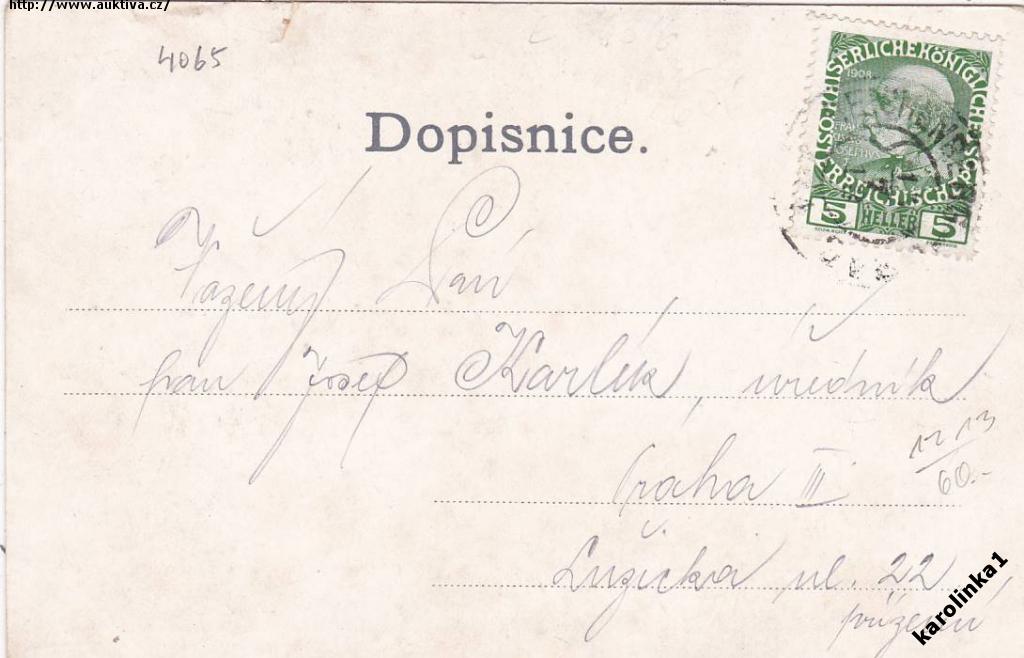 http://www.auktiva.cz/
4065
Dopisnice.
1908
KAISERLICHE KÖNIGLICHE ÖSTERREICHISCHE POST
5 HELLER 5
Vážený Pán
pan Josef Karlík, úředník
Praha III
Lužická ul. 22
přízemí
12 13
60.-
karolinka1